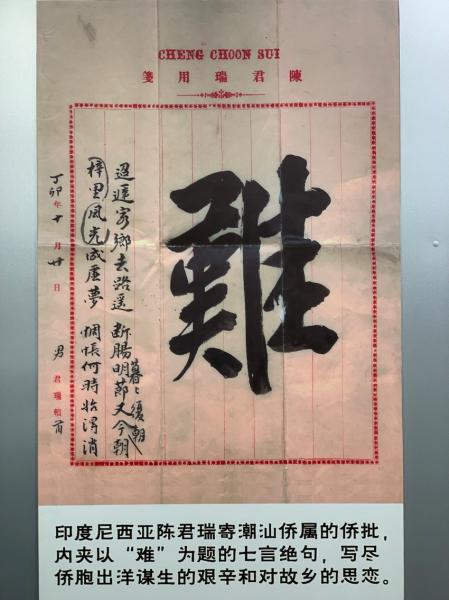 CHENG CHOON SUI
陳君瑞用箋
難
迢遞家鄉去路遥 斷腸明節又今朝
暮〻復朝
梓里風光成虛夢 惆悵何時始淂消
丁卯年十月廿日 男 君瑞
印度尼西亚陈君瑞寄潮汕侨属的侨批，
内夹以“难”为题的七言绝句，写尽
侨胞出洋谋生的艰辛和对故乡的思恋。